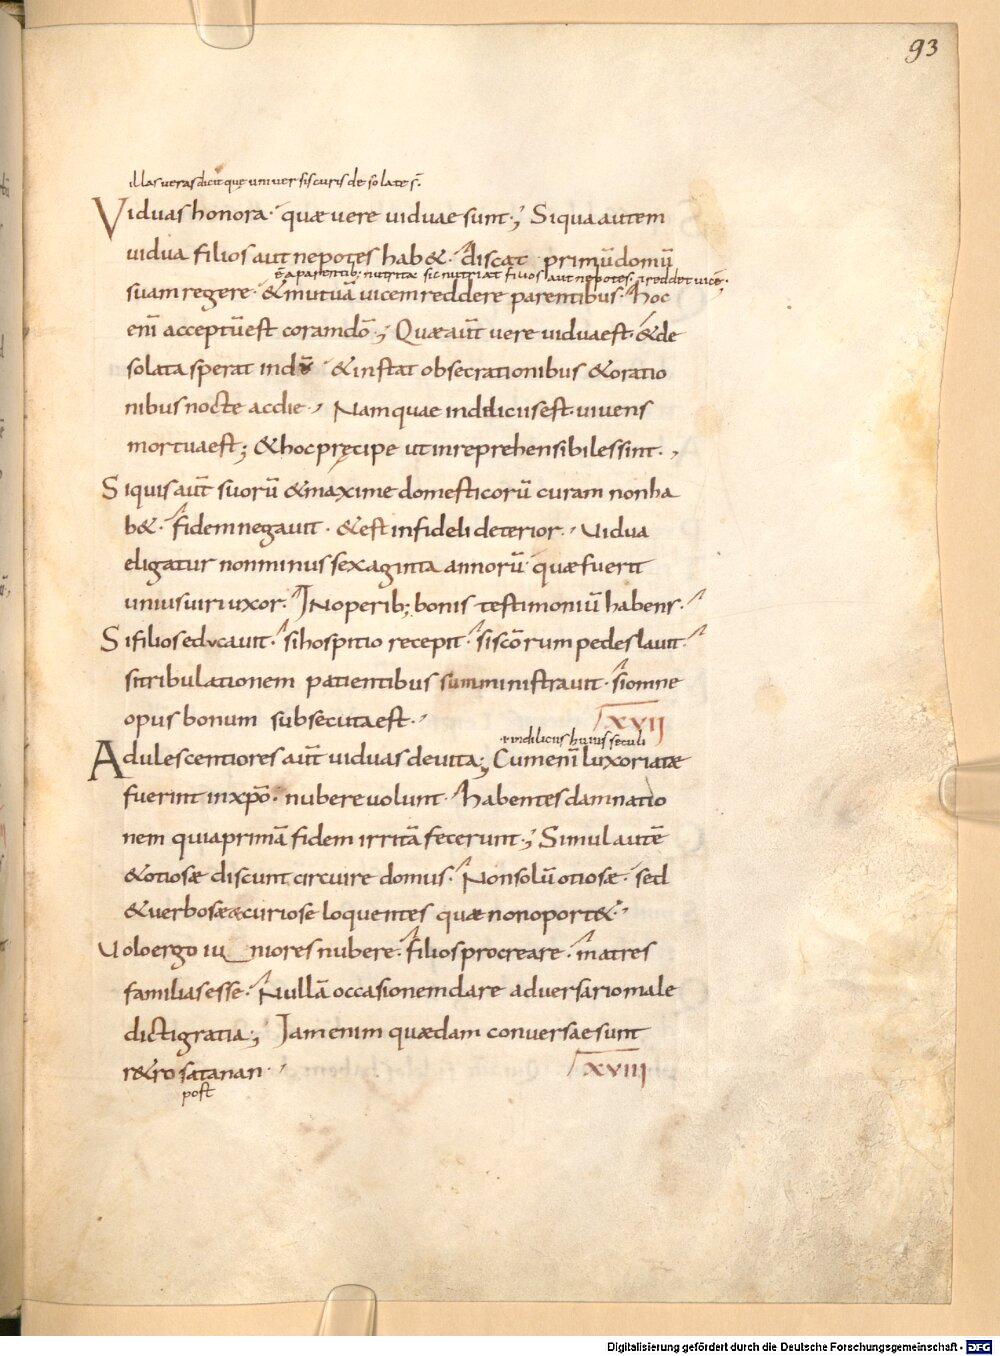 93
illas veras dicit quę universis curis desolatę s̄.
Viduas honora· quæ vere viduae sunt·; Siqua autem
vidua filios aut nepotes hab&· discat primū domū
a parentib; nutritæ sic nutriat filios aut nepotes, reddet vicē·
suam regere· & mutuā vicem reddere parentibus· hoc
enī acceptū est coram dō·; Quæ aūt vere vidua est· & de
solata sperat in dō & instat obsecrationibus & oratio
nibus nocte ac die·, Nam quae in diliciis est· vivens
mortua est; & hoc pręcipe ut inreprehensibiles sint·,
Siquis aūt suorū & maxime domesticorū curam non ha
b&· fidem negavit· & est infideli deterior·, Vidua
eligatur non minus sexaginta annorū· quæ fuerit
unius viri uxor· In operib; bonis testimoniū habens·
Si filios educavit· si hospitio recepit· si scōrum pedes lavit·
si tribulationem patientibus subministravit· si omne
opus bonum subsecuta est·, XVII
in diliciis huius seculi
Adulescentiores aūt viduas devita; Cum enī luxoriatæ
fuerint in xp̄o· nubere volunt· habentes damnatio
nem quia primā fidem irritā fecerunt·; Simul autē
& otiosæ discunt circuire domus· Non solū otiosæ· sed
& verbosæ & curiose loquentes quæ non oport&·,
Volo ergo iu niores nubere· filios procreare· matres
familias esse· Nullā occasionem dare adversario male
dicti gratia·; Iam enim quædam conversae sunt
r&ro satanan·, XVIII
post
Digitalisierung gefördert durch die Deutsche Forschungsgemeinschaft - DFG